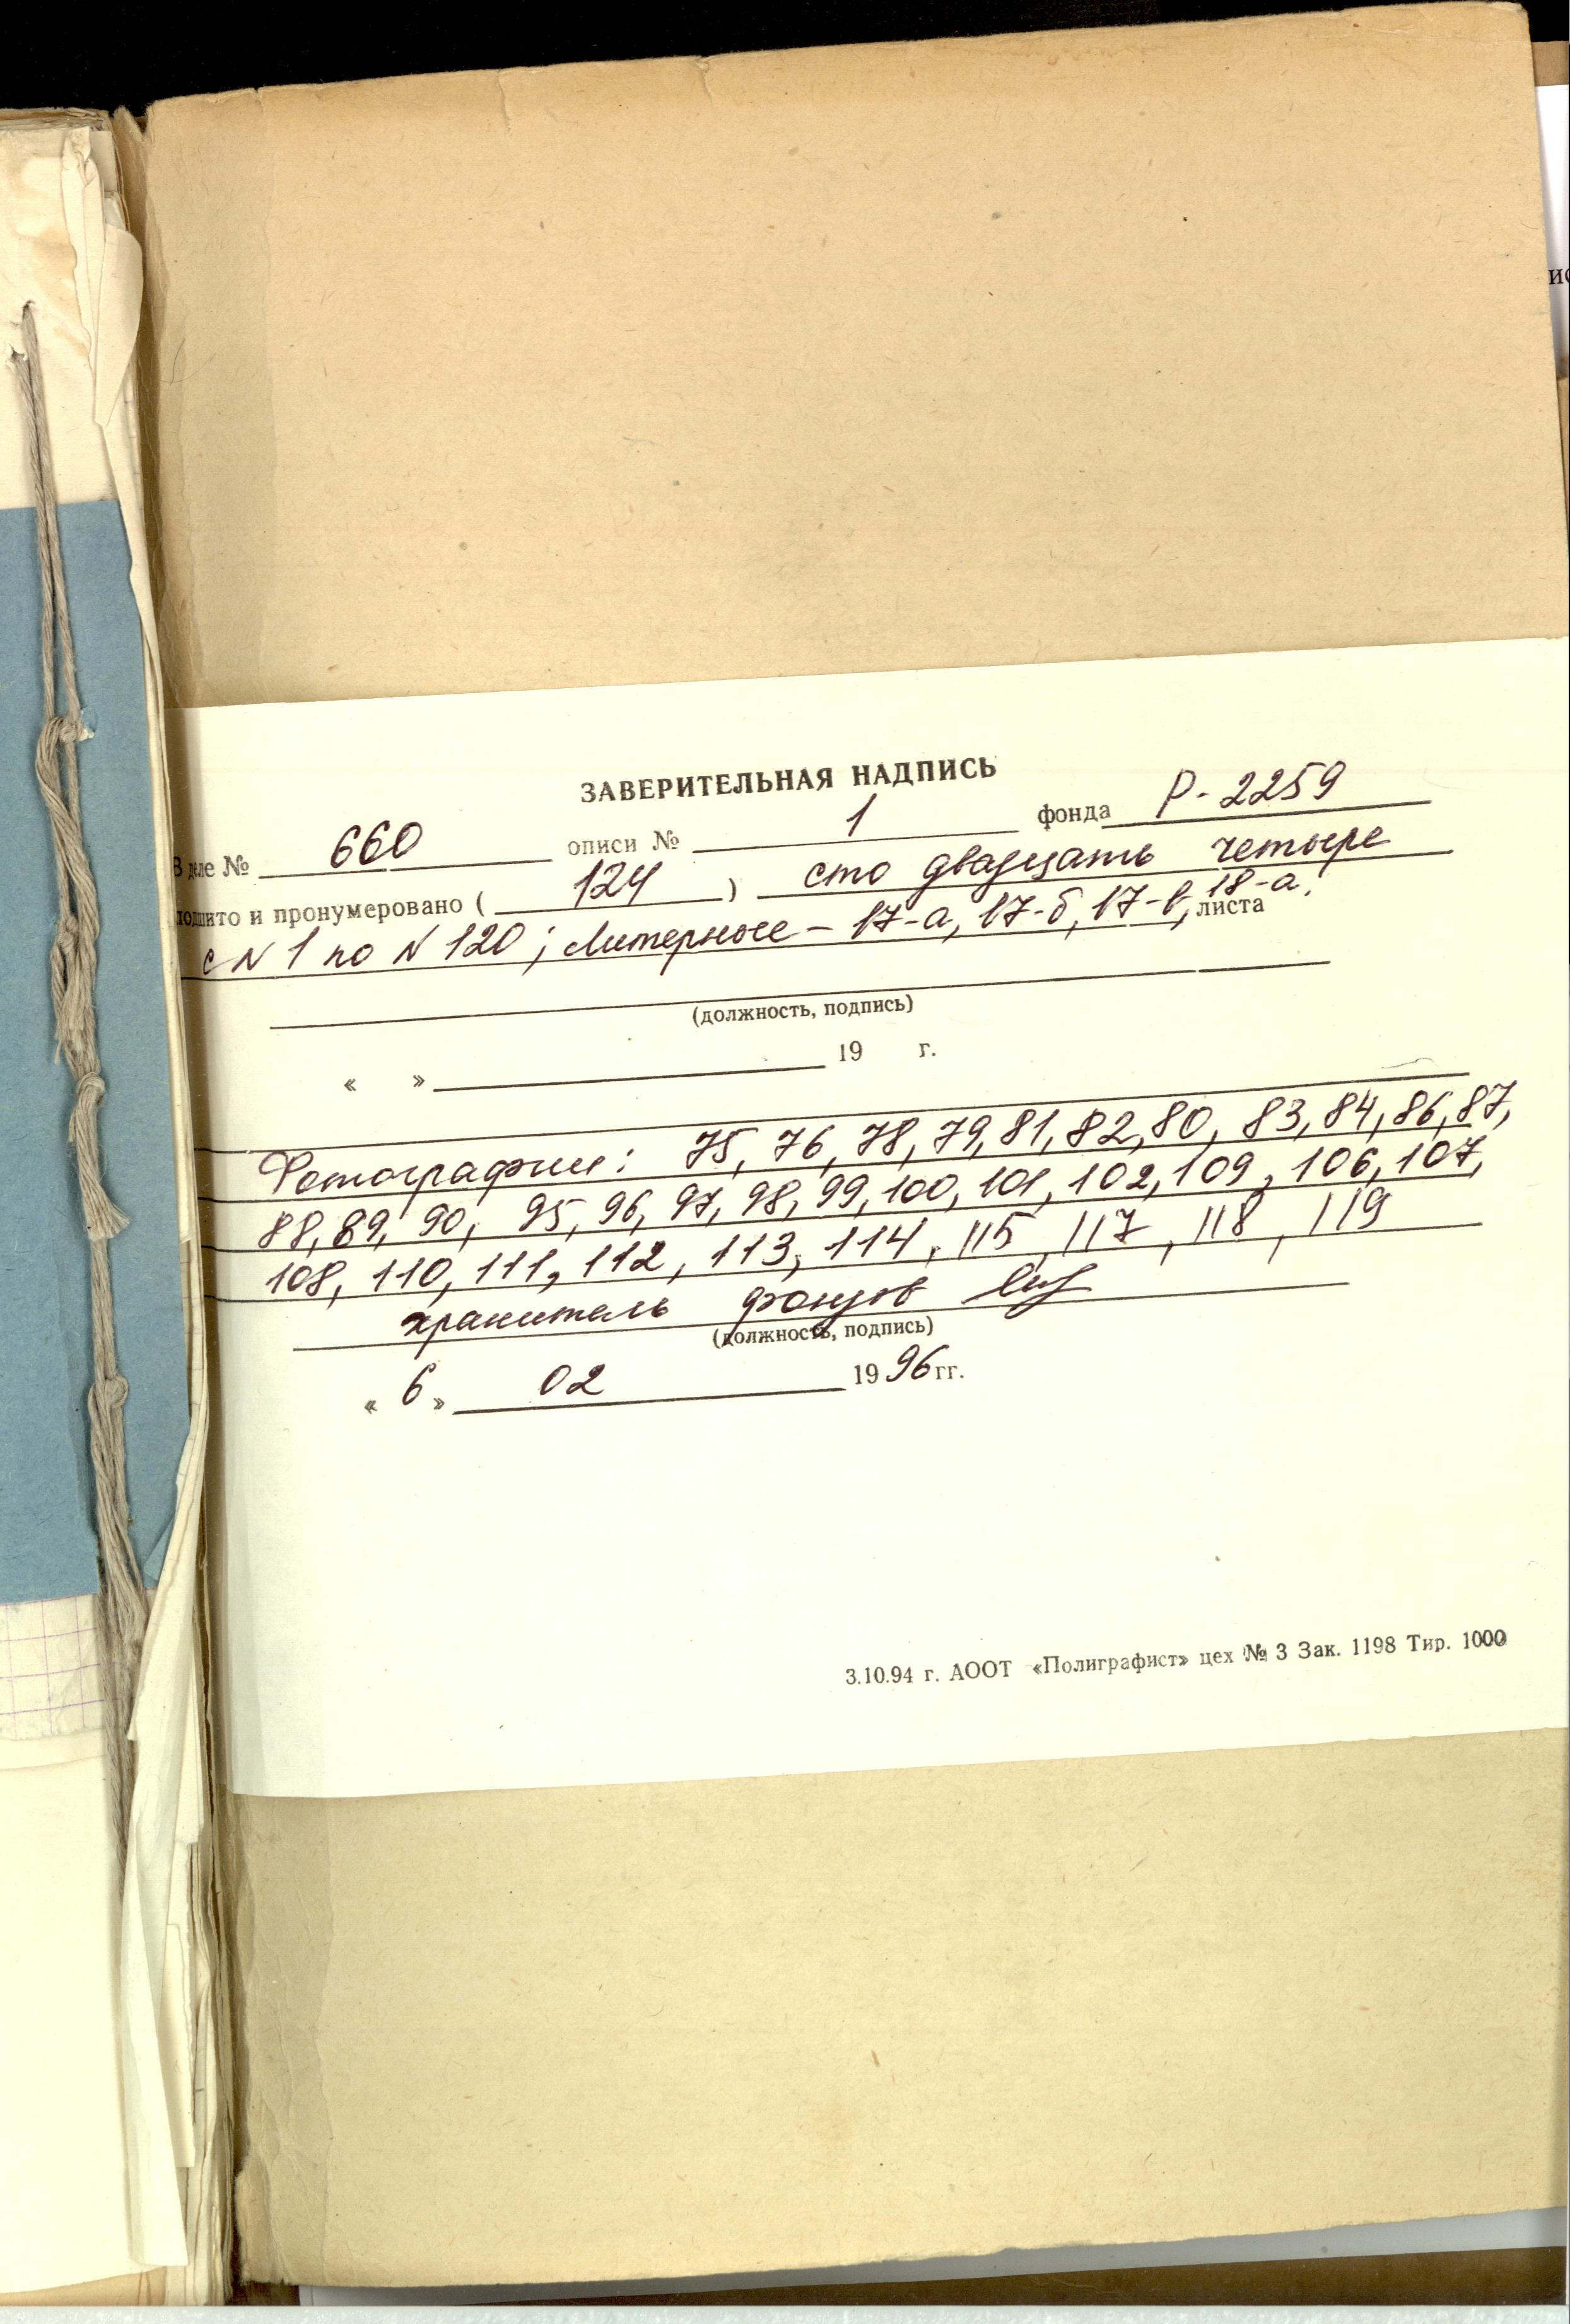 ЗАВЕРИТЕЛЬНАЯ НАДПИСЬ
В деле № 660 описи № 1 фонда Р-2259
подшито и пронумеровано ( 124 ) сто двадцать четыре
с N 1 по N 120; литерные – 17-а, 17-б, 17-в, 18-а. листа
(должность, подпись)
« » 19 г.
Фотографии: 75, 76, 78, 79, 81, 82, 80, 83, 84, 86, 87,
88, 89, 90, 95, 96, 97, 98, 99, 100, 101, 102, 109, 106, 107,
108, 110, 111, 112, 113, 114, 115, 117, 118, 119
хранитель фондов
(должность, подпись)
« 6 » 02 1996 гг.
3.10.94 г. АООТ «Полиграфист» цех № 3 Зак. 1198 Тир. 1000